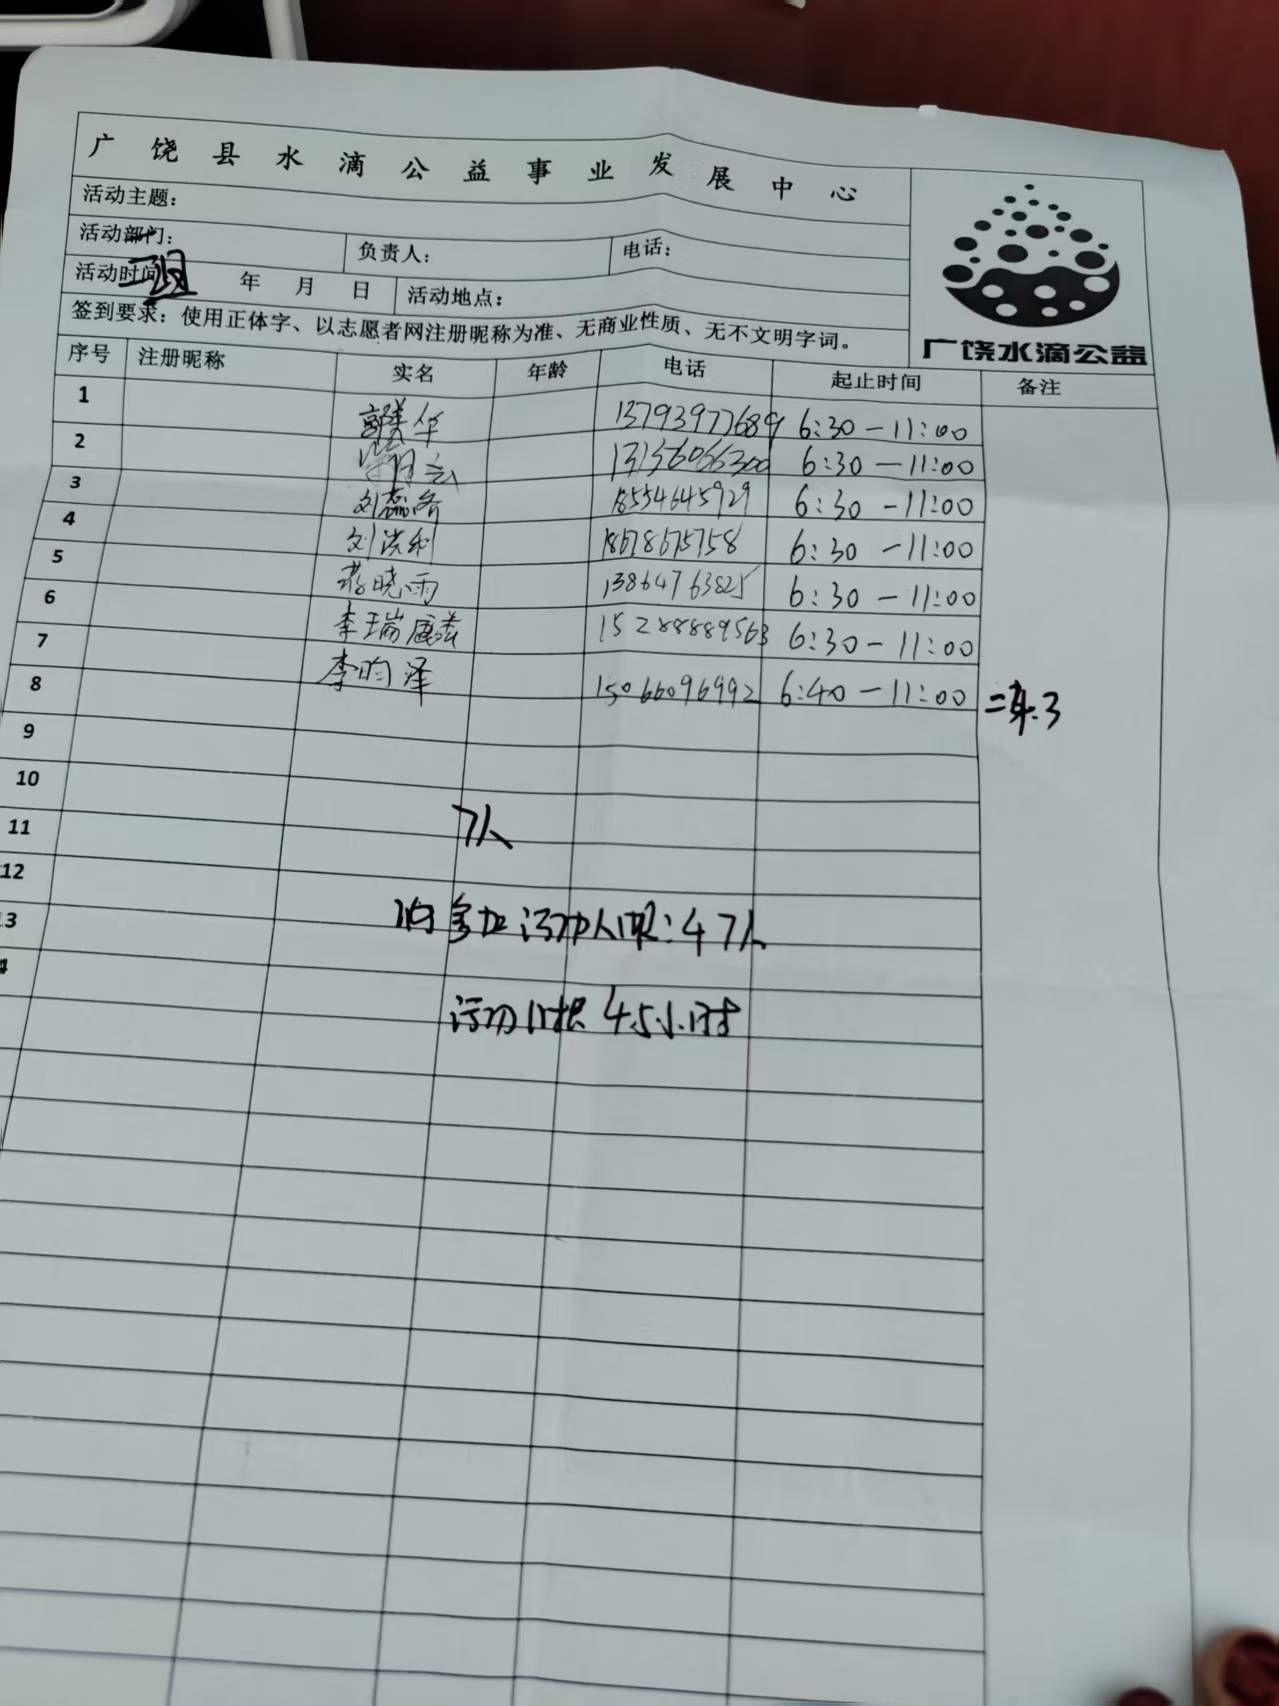 广饶县水滴公益事业发展中心
活动主题：
活动部门： 负责人： 电话：
活动时间 二组 年 月 日 活动地点：
签到要求：使用正体字、以志愿者网注册昵称为准、无商业性质、无不文明字词。
广饶水滴公益
序号 注册昵称 实名 年龄 电话 起止时间 备注
1 华 13793977689 6:30-11:00
2 6:30-11:00
3 刘磊 18554645929 6:30-11:00
4 刘洪利 18678675758 6:30-11:00
5 蒋晓雨 13864763825 6:30-11:00
6 李瑞 15288889563 6:30-11:00
7 李昀泽 15066096992 6:40-11:00
8
9
10
11
12
13
7人
参加活动人员:47人
活动时长 4.5小时